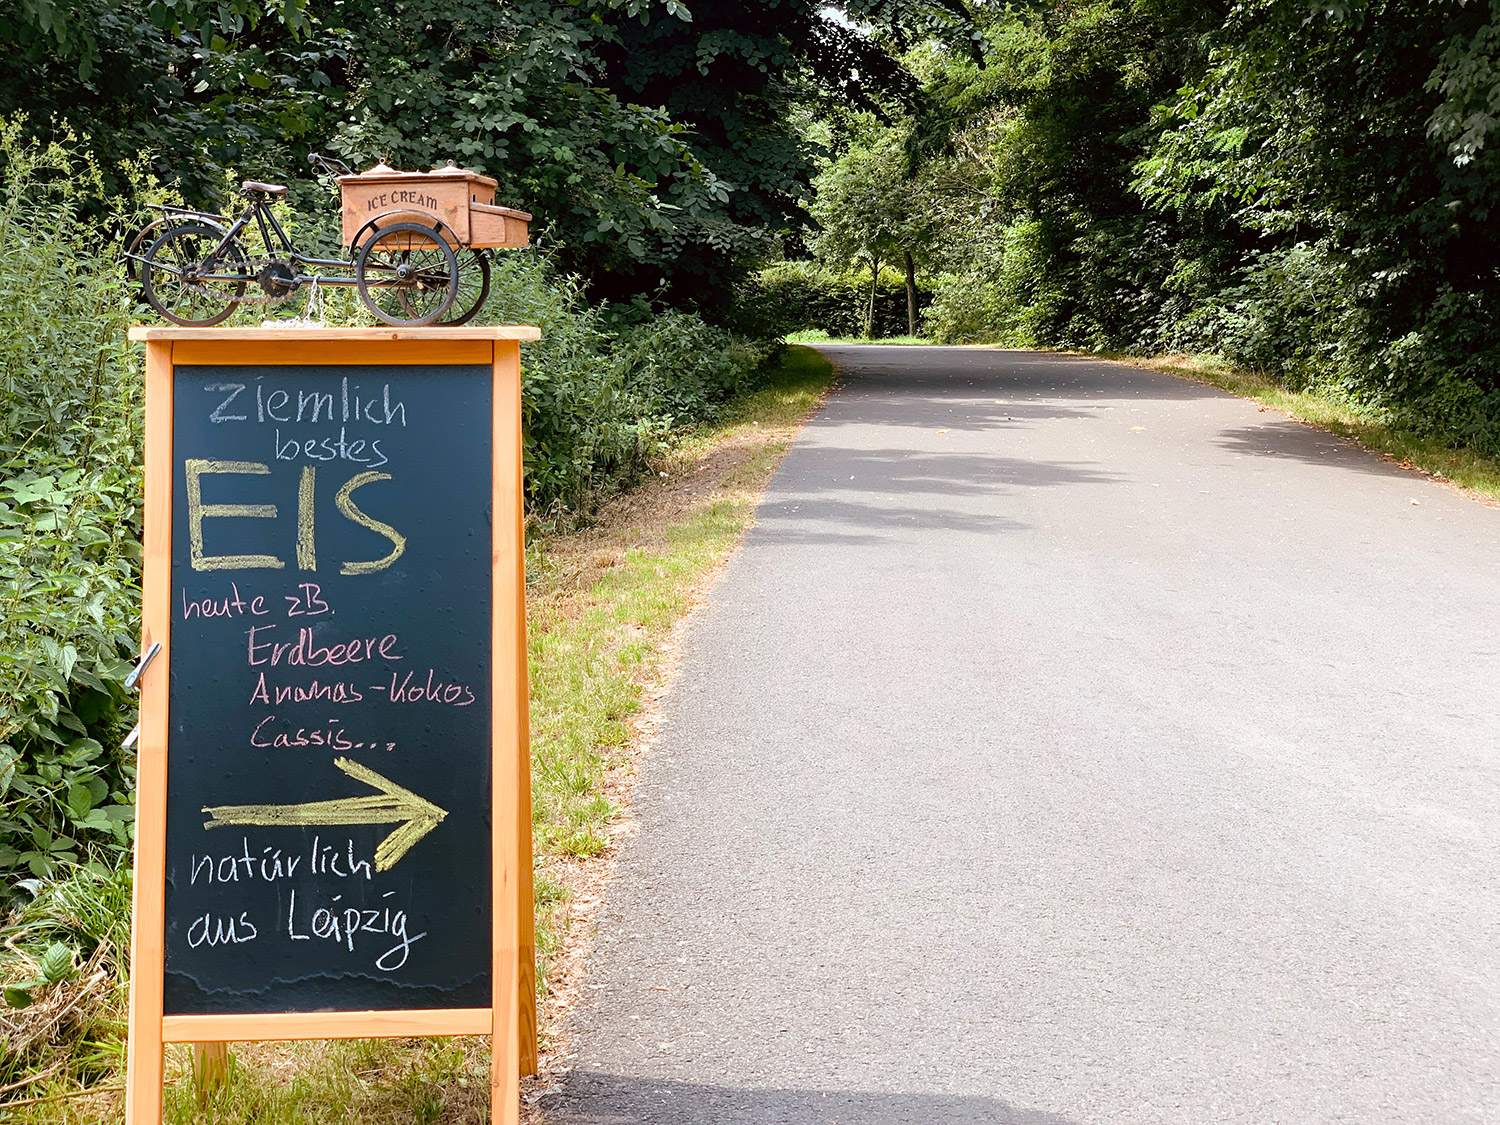 ICE CREAM
Ziemlich
bestes
EIS
heute zB.
Erdbeere
Ananas-Kokos
Cassis...
natürlich
aus Leipzig